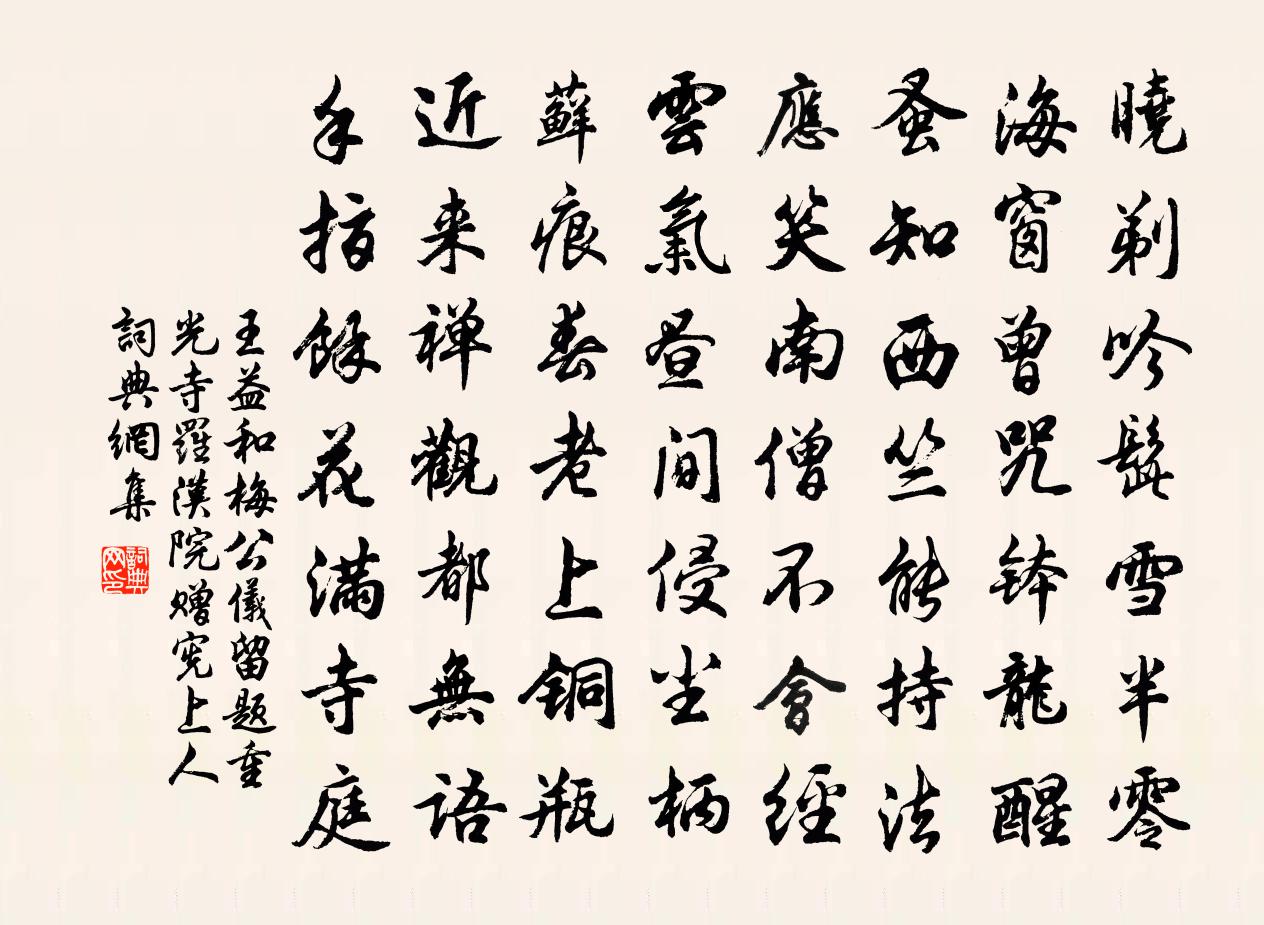 曉剃吟髭雪半零
海窗曾咒鉢龍醒
蚤知西竺能持法
應笑南僧不會經
雲氣晝間侵坐柄
蘚痕春老上銅瓶
近来禅觀都無語
手指餘花滿寺庭
王益和梅公儀留題重
光寺羅漢院贈宪上人
詞典網集
詞典网印